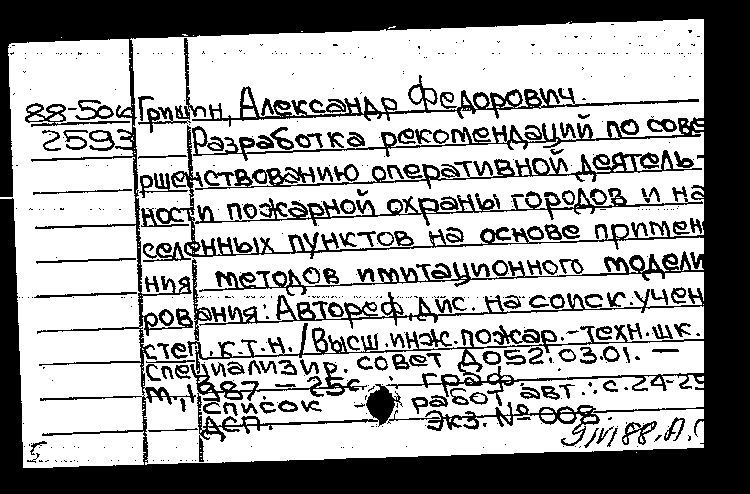 88-50к Гришин, Александр Федорович.
2593 Разработка рекомендаций по сове
ршенствованию оперативной деятель-
ности пожарной охраны городов и на
селенных пунктов на основе примен
ния методов имитационного модели
рования: Автореф. дис. на соиск. учен
степ. к.т.н. / Высш. инж. пожар.-техн. шк.
специализир. совет Д052.03.01. —
М., 1987. — 25с. : граф.
список работ авт.: с.24-25
ДСП. Экз. № 008.
5